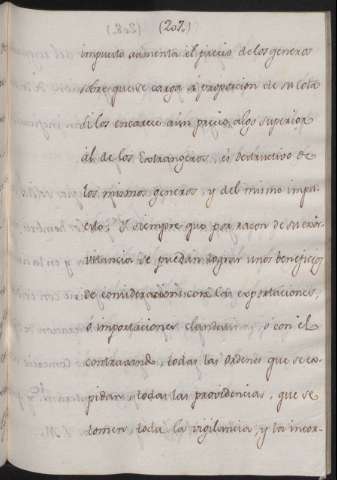 (207)
impuesto aumenta el precio de los generos
sobre que se carga á proporcion de su cota
si los encarece a un precio algo superior
al de los Extrangeros, es destructivo de
los mismos generos, y del mismo impu-
esto; y siempre que por razon de su exor-
vitancia se puedan lograr unos beneficios
de consideracion con las exportaciones,
ó importaciones clandestinas, ó con el
contravando, todas las ordenes que se ex-
pidan, todas las providencias, que se
tomen, toda la vigilancia, y la incor-